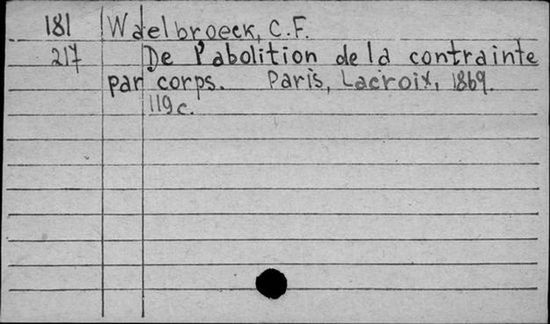 181 Waelbroeck, C.F.
217 De l'abolition de la contrainte
par corps. Paris, Lacroix, 1869.
119c.